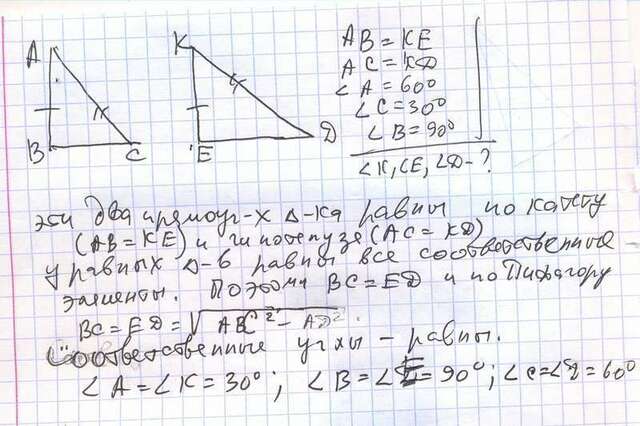 A
B
C
K
E
D
AB = KE
AC = KD
∠A = 60°
∠C = 30°
∠B = 90°
∠K, ∠E, ∠D - ?
эти два прямоуг-х Δ-ка равны по катету
(AB = KE) и гипотенузе (AC = KD)
у равных Δ-в равны все соответственные
элементы. Поэтому BC = ED и по Пифагору
BC = ED = √
Соответственные углы - равны.
∠A = ∠K = 30°; ∠B = ∠E = 90°; ∠C = ∠ = 60°